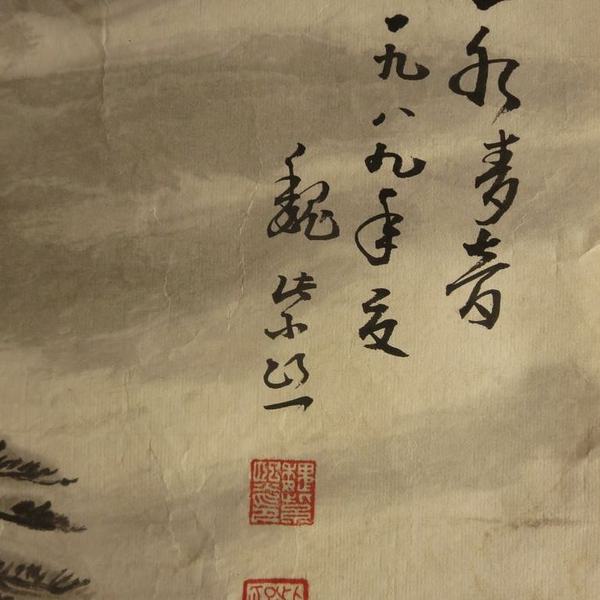 永青春
一九八九年夏
魏紫熙